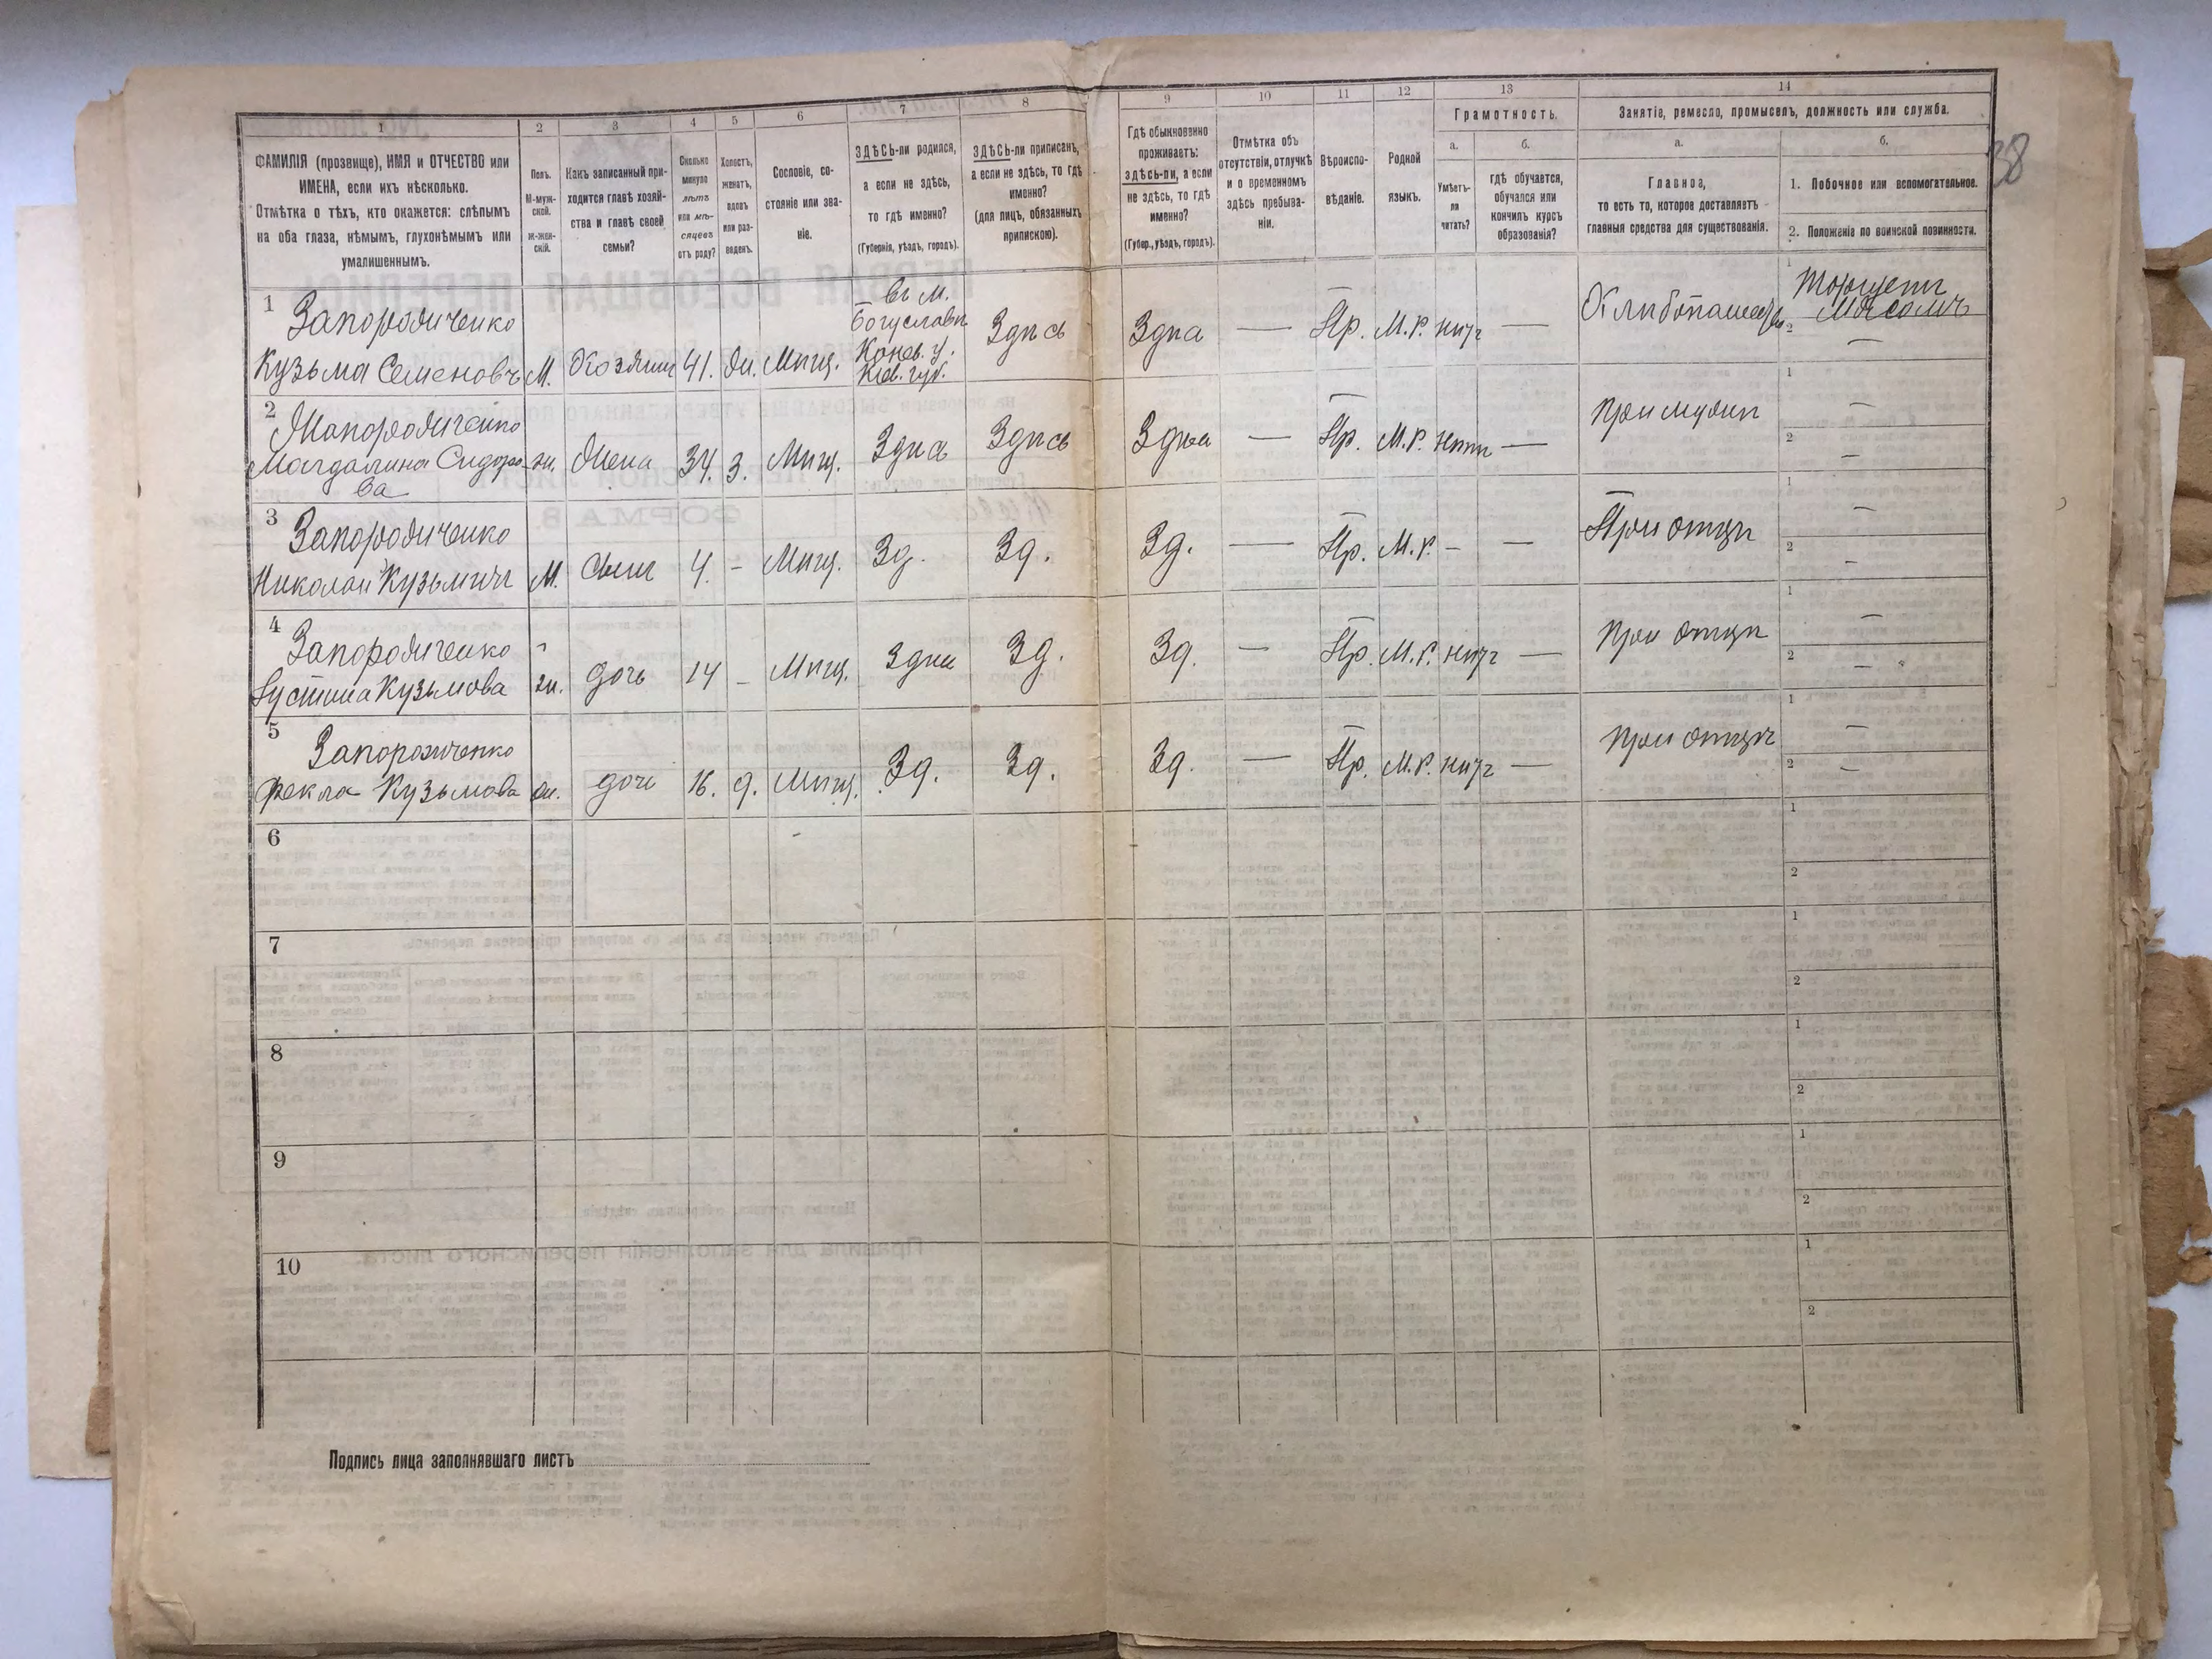 1
2
3
4
5
6
7
8
9
10
11
12
13
14
ФАМИЛІЯ (прозвище), ИМЯ и ОТЧЕСТВО или
ИМЕНА, если ихъ нѣсколько.
Отмѣтка о тѣхъ, кто окажется: слѣпымъ
на оба глаза, нѣмымъ, глухонѣмымъ или
умалишеннымъ.
Полъ.
М-муж-
ской.
ж-жен-
скій.
Какъ записанный при-
ходится главѣ хозяй-
ства и главѣ своей
семьи?
Сколько
минуло
лѣтъ
или мѣ-
сяцевъ
отъ роду?
Холостъ,
женатъ,
вдовъ
или раз-
веденъ.
Сословіе, со-
стояніе или зва-
ніе.
ЗДѢСЬ-ли родился,
а если не здѣсь,
то гдѣ именно?
(Губернія, уѣздъ, городъ).
ЗДѢСЬ-ли приписанъ,
а если не здѣсь, то гдѣ
именно?
(для лицъ, обязанныхъ
припискою).
Гдѣ обыкновенно
проживаетъ:
здѣсь-ли, а если
не здѣсь, то гдѣ
именно?
(Губер., уѣздъ, городъ).
Отмѣтка объ
отсутствіи, отлучкѣ
и о временномъ
здѣсь пребыва-
ніи.
Вѣроиспо-
вѣданіе.
Родной
языкъ.
Грамотность.
а.
Умѣетъ-
ли
читать?
б.
гдѣ обучается,
обучался или
кончилъ курсъ
образованія?
Занятіе, ремесло, промыселъ, должность или служба.
а.
Главное,
то есть то, которое доставляетъ
главныя средства для существованія.
б.
1. Побочное или вспомогательное.
2. Положеніе по воинской повинности.
38
1 Запорожченко
Кузьма Семеновъ М. Хозяин 41. Ж. Мѣщ. въ М. Богуславѣ Канев. у. Кіев. губ. Здѣсь Здѣсь — Пр. М.Р. нѣт — Хлѣбопашец 1 Торгует Мясомъ 2 —
2 Запорожченко
Магдалина Сидоро-
ва ж. Жена 34. З. Мѣщ. Здѣсь Здѣсь Здѣсь — Пр. М.Р. нѣт — При мужѣ 1 — 2 —
3 Запорожченко
Николай Кузьмич М. Сын 4. – Мѣщ. Зд. Зд. Зд. — Пр. М.Р. – — При отцѣ 1 — 2 —
4 Запорожченко
Устина Кузьмова ж. дочь 14 – Мѣщ. Здѣсь Зд. Зд. — Пр. М.Р. нѣт — При отцѣ 1 — 2 —
5 Запорожченко
Фекла Кузьмова ж. дочь 16. д. Мѣщ. Зд. Зд. Зд. — Пр. М.Р. нѣт — При отцѣ 1 — 2 —
6 1 2
7 1 2
8 1 2
9 1 2
10 1 2
Подпись лица заполнявшаго листъ